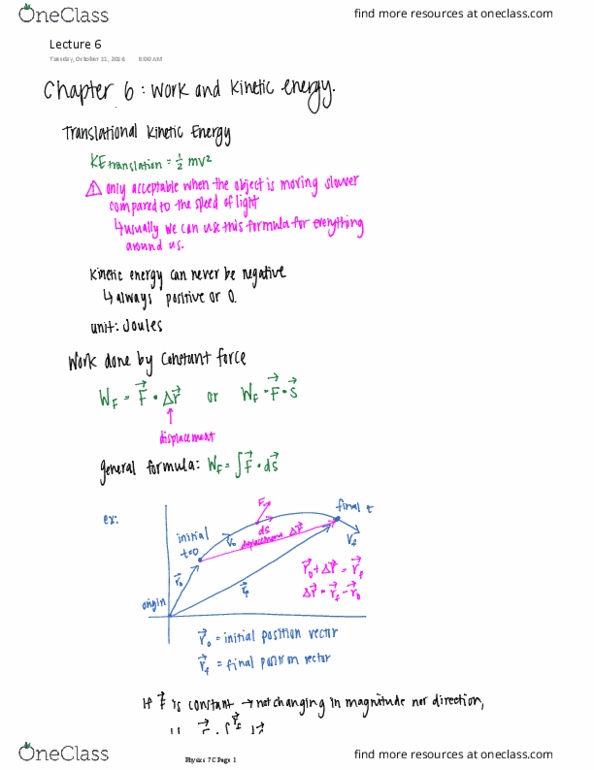 OneClass
find more resources at oneclass.com
Lecture 6
Tuesday, October 11, 2016 8:00 AM
Chapter 6: Work and Kinetic energy.
Translational Kinetic Energy
KEtranslation = ½mv²
⚠ only acceptable when the object is moving slower
compared to the speed of light
↳ usually we can use this formula for everything
around us.
Kinetic energy can never be negative
↳ always positive or 0.
unit: Joules
Work done by constant force
W_F = F⃗ • Δr⃗ or W_F = F⃗ • s⃗
↑
displacement
general formula: W_F = ∫F⃗ • ds⃗
ex:
F
final t
initial
t=0
v⃗₀
ds
displacement Δr⃗
v⃗_f
r⃗₀
r⃗_f
r⃗₀ + Δr⃗ = r⃗_f
Δr⃗ = r⃗_f - r⃗₀
origin
r⃗₀ = initial position vector
r⃗_f = final position vector
If F⃗ is constant → not changing in magnitude nor direction,
OneClass
find more resources at oneclass.com
Physics 7C Page 1